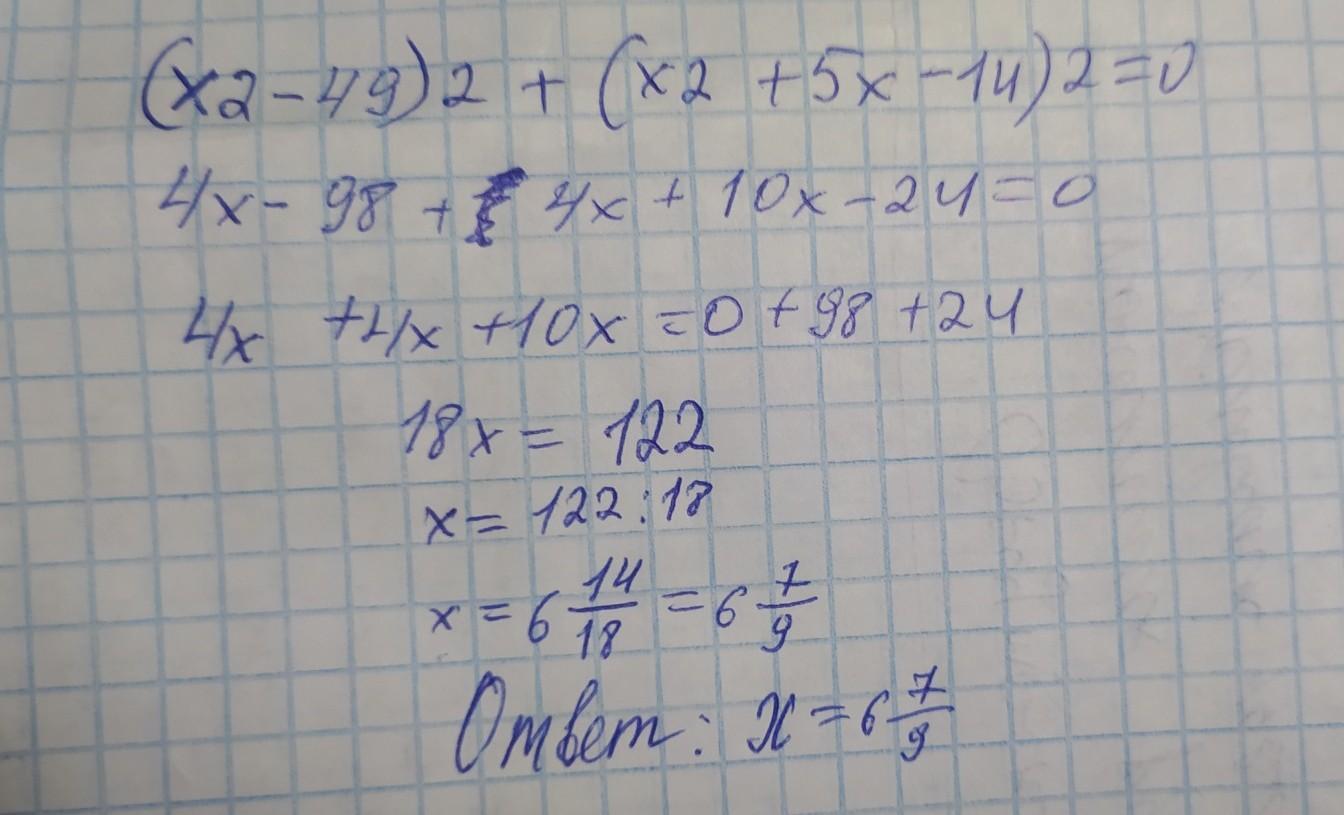 (x2-49)2 + (x2 +5x-14)2=0
4x- 98 + 4x + 10x-24=0
4x +4x +10x =0+98 +24
18x= 122
x= 122:18
x= 6 14/18 = 6 7/9
Ответ: x=6 7/9